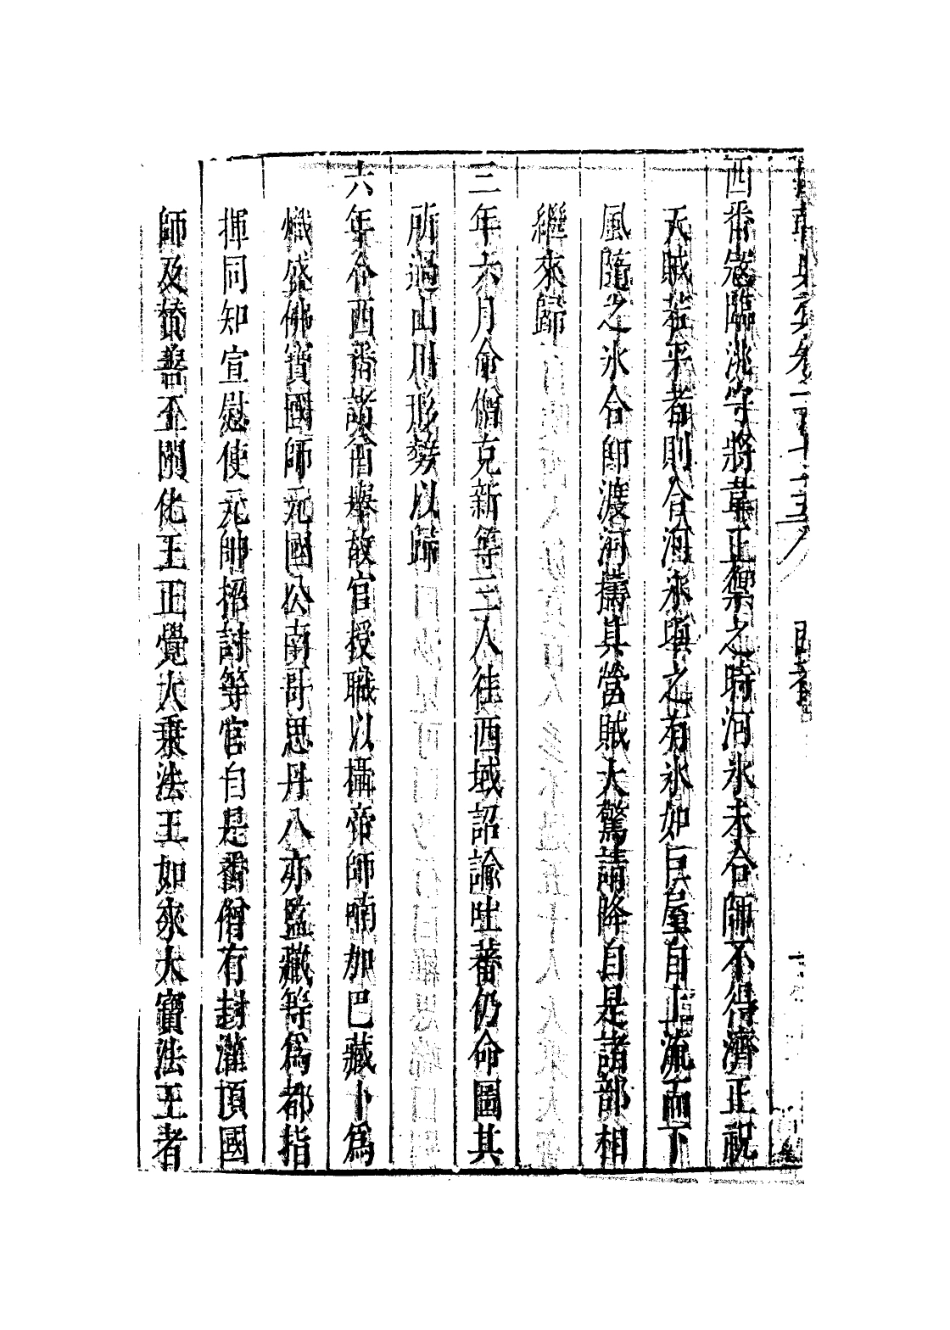 西番寇臨洮守將韋正禦之時河氷未合師不得濟正祝
天賊若平者則合河氷與之有氷如巨屋自上流而下
風隨之氷合師渡河擣其營賊大驚請降自是諸部相
繼來歸
三年六月命僧克新等三人往西域詔諭吐蕃仍命圖其
所過山川形勢以歸
六年令西番諸酋舉故官授職以攝帝師喃加巴藏卜爲
熾盛佛寶國師元國公南哥思丹八亦監藏等爲都指
揮同知宣慰使元帥招討等官自是番僧有封灌頂國
師及贊善王闡化王正覺大乘法王如來大寶法王者